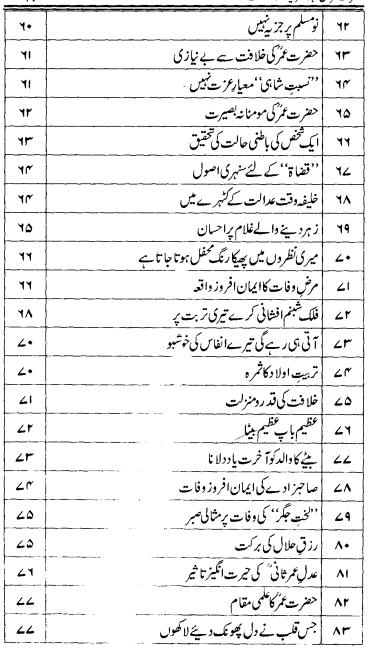 ۶۲ نو مسلم پر جزیہ نہیں ۶۰
۶۳ حضرت عمرؒ کی خلافت سے بے نیازی ۶۱
۶۴ ”نسبتِ شاہی“ معیارِ عزت نہیں ۶۱
۶۵ حضرت عمرؒ کی مومنانہ بصیرت ۶۲
۶۶ ایک شخص کی باطنی حالت کی تحقیق ۶۳
۶۷ ”قضاۃ“ کے لئے سنہری اصول ۶۴
۶۸ خلیفہ وقت عدالت کے کٹہرے میں ۶۴
۶۹ زہر دینے والے غلام پر احسان ۶۵
۷۰ میری نظروں میں پھیکا رنگ محفل ہوتا جاتا ہے ۶۶
۷۱ مرضِ وفات کا ایمان افروز واقعہ ۶۶
۷۲ فلک شبنم افشانی کرے تیری تربت پر ۶۸
۷۳ آتی ہی رہے گی تیرے انفاس کی خوشبو ۷۰
۷۴ تربیتِ اولاد کا ثمرہ ۷۰
۷۵ خلافت کی قدر و منزلت ۷۱
۷۶ عظیم باپ عظیم بیٹا ۷۲
۷۷ بیٹے کا والد کو آخرت یاد دلانا ۷۳
۷۸ صاحبزادے کی ایمان افروز وفات ۷۴
۷۹ ”لختِ جگر“ کی وفات پر مثالی صبر ۷۵
۸۰ رزقِ حلال کی برکت ۷۵
۸۱ عدلِ عمر ثانیؒ کی حیرت انگیز تاثیر ۷۶
۸۲ حضرت عمرؒ کا علمی مقام ۷۷
۸۳ جس قلب نے دل پھونک دیئے لاکھوں ۷۷